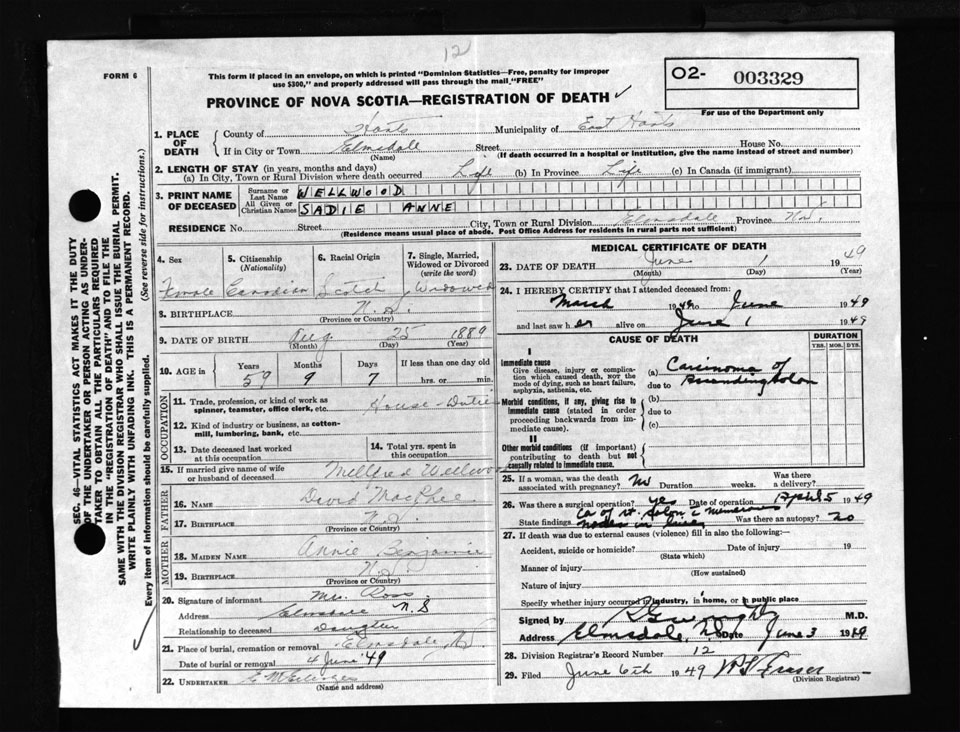 12
FORM 6
This form if placed in an envelope, on which is printed "Dominion Statistics—Free, penalty for improper
use $300," and properly addressed will pass through the mail "FREE"
PROVINCE OF NOVA SCOTIA—REGISTRATION OF DEATH ✓
O2- 003329
For use of the Department only
SEC. 46—VITAL STATISTICS ACT MAKES IT THE DUTY
OF THE UNDERTAKER OR PERSON ACTING AS UNDER-
TAKER TO OBTAIN ALL THE PARTICULARS REQUIRED
IN THE "REGISTRATION OF DEATH" AND TO FILE THE
SAME WITH THE DIVISION REGISTRAR WHO SHALL ISSUE THE BURIAL PERMIT.
WRITE PLAINLY WITH UNFADING INK. THIS IS A PERMANENT RECORD.
Every item of information should be carefully supplied. (See reverse side for instructions.)
1. PLACE OF DEATH
County of Hants Municipality of East Hants
If in City or Town Elmsdale Street House No.
(Name) (If death occurred in a hospital or institution, give the name instead of street and number)
2. LENGTH OF STAY (in years, months and days)
(a) In City, Town or Rural Division where death occurred Life (b) In Province Life (c) In Canada (if immigrant)
3. PRINT NAME OF DECEASED
Surname or Last Name WELLWOOD
All Given or Christian Names SADIE ANNE
RESIDENCE No. Street City, Town or Rural Division Elmsdale Province N.S.
(Residence means usual place of abode. Post Office Address for Residents in rural parts not sufficient)
4. Sex 5. Citizenship (Nationality) 6. Racial Origin 7. Single, Married, Widowed or Divorced (write the word)
Female Canadian Scotch Widowed
8. BIRTHPLACE N.S.
(Province or Country)
9. DATE OF BIRTH Aug. 25 1889
(Month) (Day) (Year)
10. AGE IN Years Months Days If less than one day old
59 9 7 hrs. or min.
OCCUPATION
11. Trade, profession, or kind of work as
spinner, teamster, office clerk, etc. House-Duties
12. Kind of industry or business, as cotton-
mill, lumbering, bank, etc.
13. Date deceased last worked at this occupation
14. Total yrs. spent in this occupation
15. If married give name of wife
or husband of deceased Wellwood
FATHER
16. Name David MacPhee
17. Birthplace N.S.
(Province or Country)
MOTHER
18. Maiden Name Annie Benjamin
19. Birthplace N.S.
(Province or Country)
20. Signature of informant Mrs. Ross
Address Elmsdale N.S
Relationship to deceased Daughter
21. Place of burial, cremation or removal Elmsdale N.S
Date of burial or removal 4 June '49
22. Undertaker
(Name and address)
MEDICAL CERTIFICATE OF DEATH
23. DATE OF DEATH June 1 1949
(Month) (Day) (Year)
24. I HEREBY CERTIFY that I attended deceased from:
March 1949 to June 1949
and last saw her alive on June 1 1949
CAUSE OF DEATH
DURATION
YRS. MOS. DYS.
I
Immediate cause
Give disease, injury or complica-
tion which caused death, NOT the
mode of dying, such as heart failure,
asphyxia, asthenia, etc.
(a) Carcinoma of
due to Ascending Colon
Morbid conditions, if any, giving rise to
immediate cause (stated in order
proceeding backwards from im-
mediate cause).
(b)
due to
(c)
II
Other morbid conditions (if important)
contributing to death but not
causally related to immediate cause.
25. If a woman, was the death
associated with pregnancy? No Duration weeks. Was there a delivery?
26. Was there a surgical operation? yes Date of operation April 5 1949
State findings Ca of rt. colon c numerous
nodes in liver Was there an autopsy? no
27. If death was due to external causes (violence) fill in also the following:—
Accident, suicide or homicide? Date of injury 19
(State which)
Manner of injury
(How sustained)
Nature of injury
Specify whether injury occurred in industry, in home, or in public place
Signed by M.D.
Address Elmsdale, N.S Date June 3 1949
28. Division Registrar's Record Number 12
29. Filed June 6th 1949 Fraser
(Division Registrar)